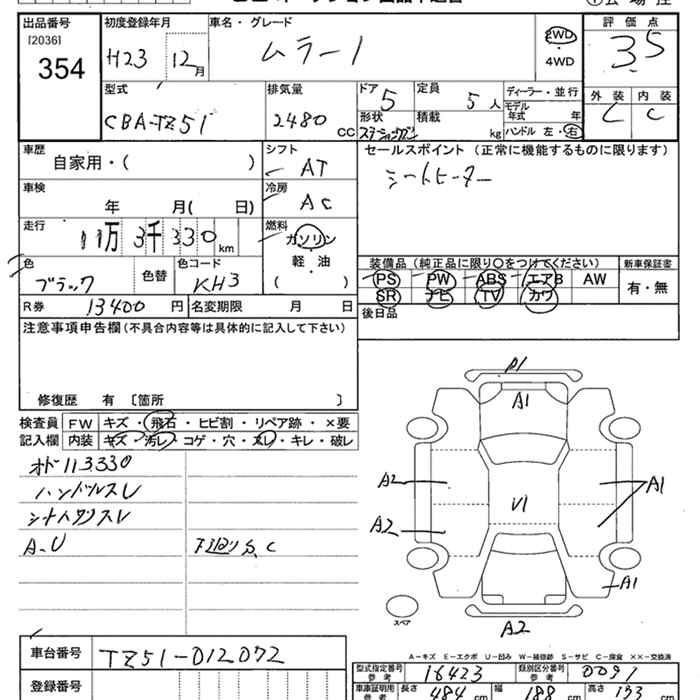 出品番号 [2036] 354
初度登録年月 H23 12月
車名・グレード ムラーノ
2WD・4WD
評価点 3.5
型式 CBA-TZ51
排気量 2480 CC
ドア 5
形状 ステーションワゴン
定員 5人
積載 kg
ディーラー・並行
モデル年式 年
ハンドル 左・右
外装 C
内装 C
車歴 自家用・( )
シフト AT
セールスポイント (正常に機能するものに限ります)
シートヒーター
車検 年 月( 日)
冷房 AC
走行 11万3千330km
燃料 ガソリン・軽油 ( )
色 ブラック
色替
色コード KH3
装備品 (純正品に限り○をつけてください)
新車保証書
PS PW ABS エアB AW
有・無
SR ナビ TV カワ
R券 13400円
名変期限 月 日
後日品
注意事項申告欄(不具合内容等は具体的に記入して下さい)
修復歴 有 〔箇所 〕
検査員 FW キズ・飛石・ヒビ割・リペア跡・×要
記入欄 内装 キズ・汚レ・コゲ・穴・スレ・キレ・破レ
オド113330
ハンドルスレ
A-U
下廻りS.C
A1
A2
U1
A1
A2
A1
スペア
A2
A-キズ E-エクボ U-凹み W-補修跡 S-サビ C-腐食 ××-交換済
車台番号 TZ51-012072
型式指定番号 参考 16423
類別区分番号 参考 0091
登録番号
車庫証明用 参考 長さ 484 cm 幅 188 cm 高さ 173 cm